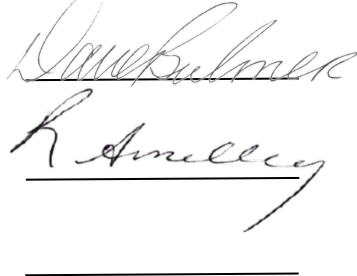 Dave Bulmer
R Smelley